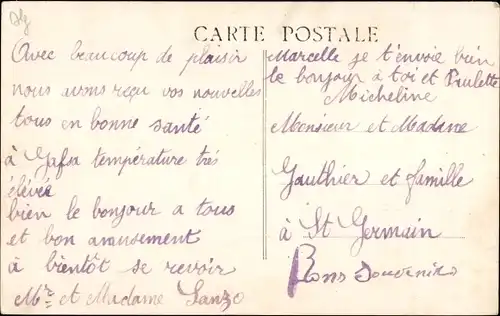 CARTE POSTALE
Avec beaucoup de plaisir
nous avons reçu vos nouvelles
tous en bonne santé
à Gafsa température trés
élévée
bien le bonjour a tous
et bon amusement
à bientôt se revoir
Mr et Madame Lanzo
Marcelle je t'envoie bien
le bonjour à toi et Paulette
Micheline
Monsieur et Madame
Gauthier et famille
à St Germain
Bons Souvenirs